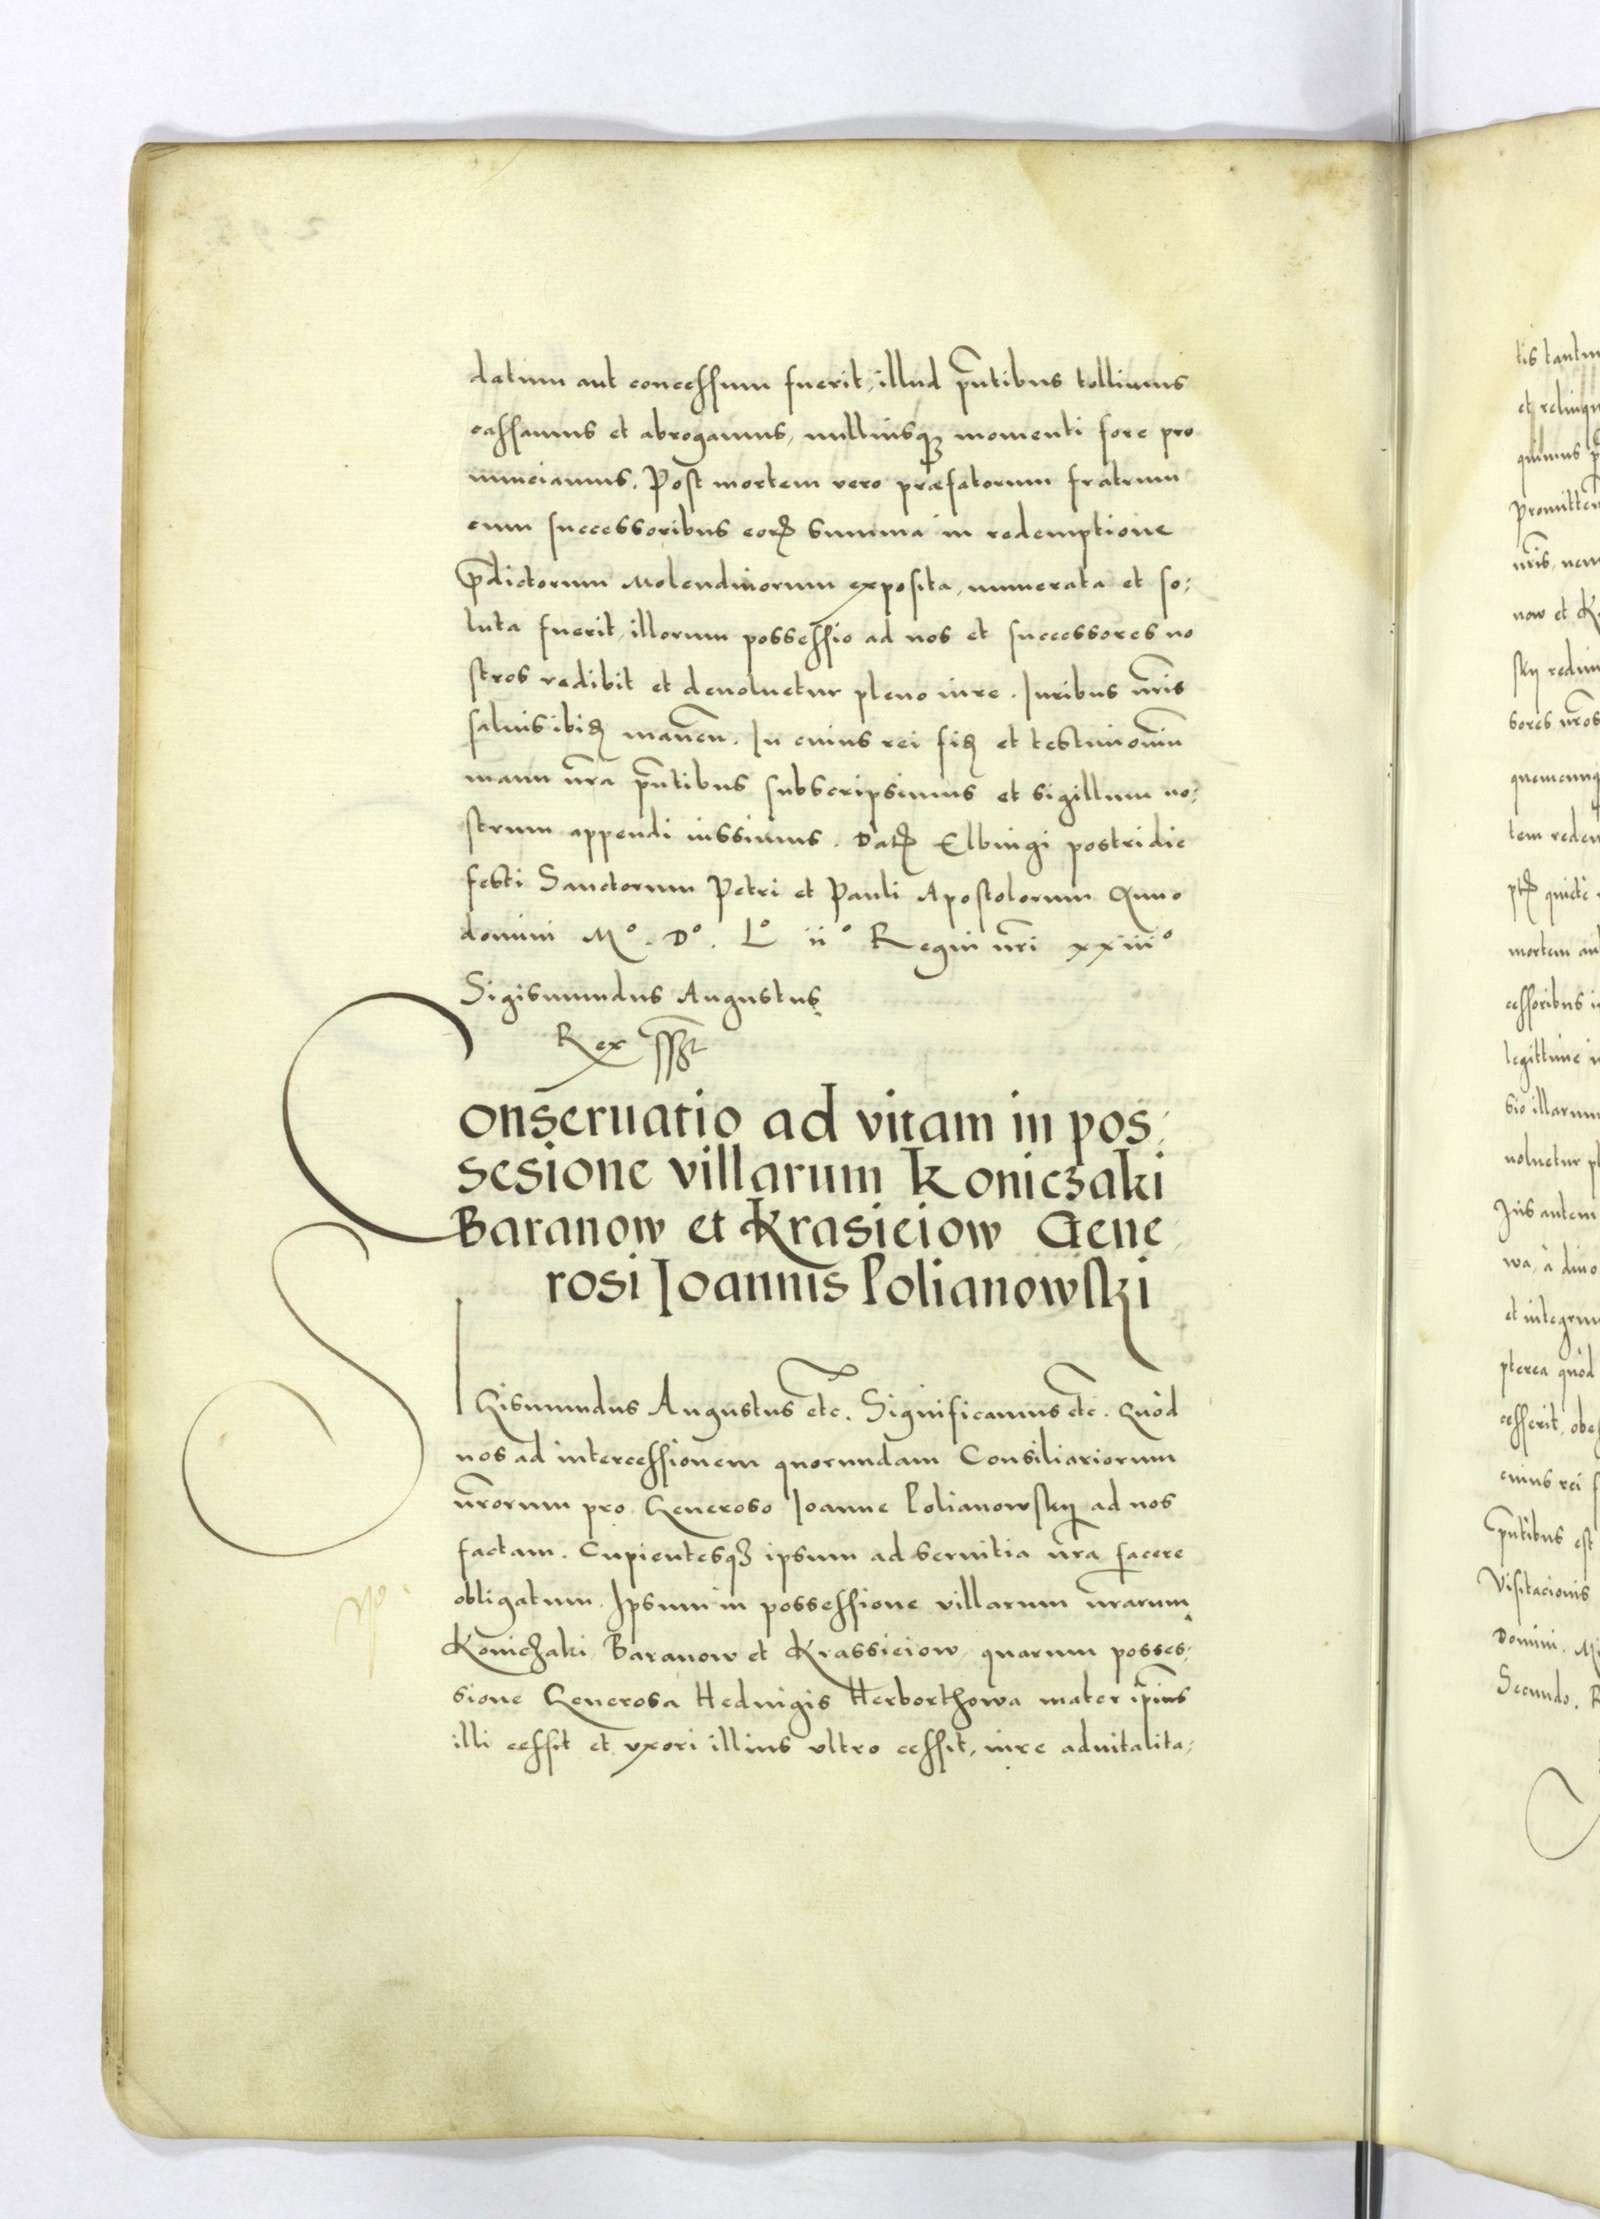 datum aut concessum fuerit, illud pñtibus tollimus
cassamus et abrogamus, nulliusqꝫ momenti fore pro
nunciamus. Post mortem vero præfatorum fratrum
cum successoribus eorꝝ summa in redemptione
p̃dictorum Molendinorum exposita, numerata et so:
luta fuerit, illorum possessio ad nos et successores no
stros redibit et devoluetur pleno iure. Iuribus nr̃is
saluis ibiꝫ maneñ. In cuius rei fiꝫ et testimoniũ
manu nr̃a pñtibus subscripsimus et sigillum no:
strum appendi iussimus. Datꝝ Elbingi postridie
festi Sanctorum Petri et Pauli Apostolorum Anno
domini Mº. Dº. Lº iiº Regni nr̃i xxiiiº
Sigismundus Augustus
Rex sst
Conseruatio ad vitam in pos:
sesione villarum Koniczaki
Baranow et Krasieiow Gene
rosi Joannis Polianowski
SIGismundus Augustus etc̃. Significamus etc̃. Quòd
nos ad intercessionem quorundam Consiliariorum
nr̃orum pro Generoso Ioanne Polianowsky ad nos
factam. Cupientesqꝫ ipsum ad seruitia nr̃a facere
obligatum. Ipsum in possessione villarum nr̃arum
Koniczaki, Baranow et Krassieiow, quarum posses:
sione Generosa Heduigis Herborthowa mater ip̃ius
illi cessit et vxori illius vltro cessit, iure aduitalita:
tis tantum
et relinqu
quimus
Promitten
nr̃is, nem
now et K
sky redim
sores nr̃os
quemcunq
tem redem
ptꝝ quiete
mortem aut
cessoribus i
legittime
sio illarum
uoluetur pl
Jus autem
wa, à diuo
et integrum
pterea quòd
cesserit, obes
cuius rei f
pñtibus est
Visitacionis
Domini. Mi
Secundo. R